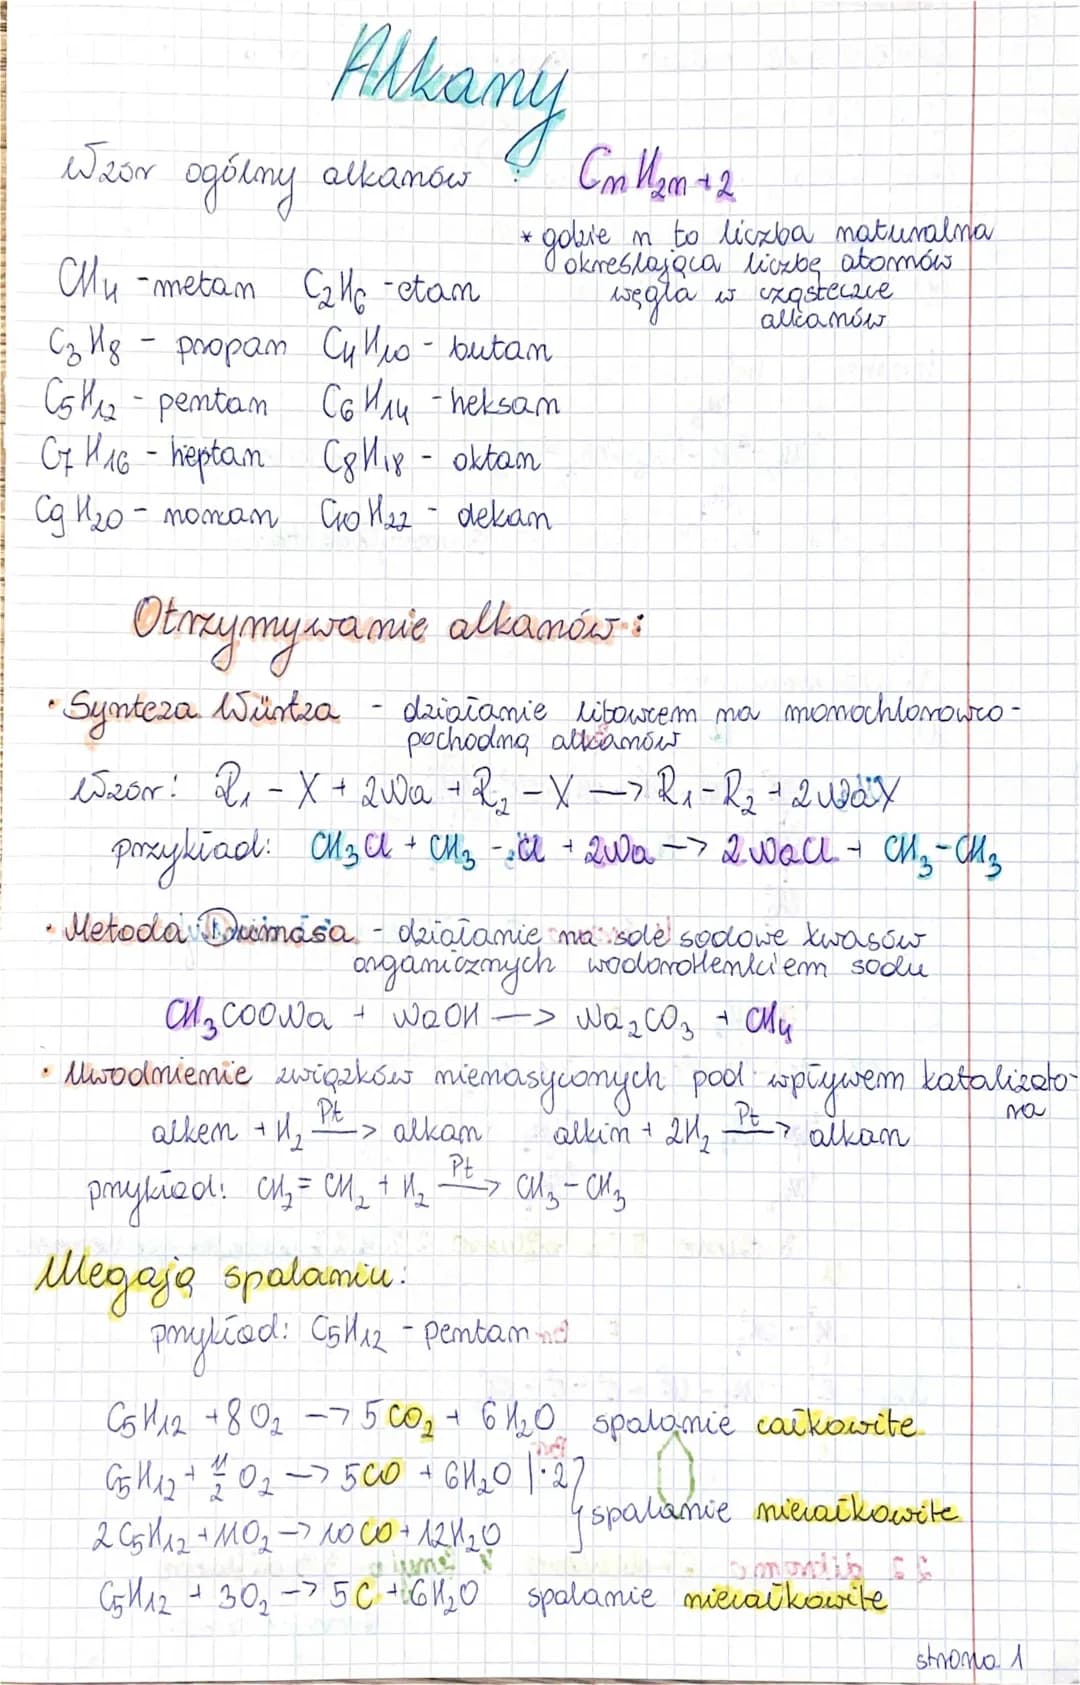 Alkany
Wzór ogólny alkanów : CnH2n+2
* gdzie n to liczba naturalna
określająca liczbę atomów
węgla w cząsteczce
alkanów
CH4 - metan C2H6 - etan
C3H8 - propan C4H10 - butan
C5H12 - pentan C6H14 - heksan
C7H16 - heptan C8H18 - oktan
C9H20 - nonan C10H22 - dekan
Otrzymywanie alkanów:
• Synteza Würtza - działanie litowcem na monochlorowco-
pochodną alkanów
Wzór: R1 - X + 2Na + R2 - X → R1 - R2 + 2NaX
przykład: CH3Cl + CH3 - Cl + 2Na → 2NaCl + CH3 - CH3
• Metoda Dumasa - działanie na sole sodowe kwasów
organicznych wodorotlenkiem sodu
CH3COONa + NaOH → Na2CO3 + CH4
• Uwodnienie związków nienasyconych pod wpływem katalizato-
ra
alken + H2 Pt → alkan alkin + 2H2 Pt → alkan
przykład: CH2 = CH2 + H2 Pt → CH3 - CH3
Ulegają spalaniu:
przykład: C5H12 - pentan
C5H12 + 8O2 → 5CO2 + 6H2O spalanie całkowite
C5H12 + 11/2 O2 → 5CO + 6H2O |·2
2C5H12 + 11O2 → 10CO + 12H2O } spalanie niecałkowite
C5H12 + 3O2 → 5C + 6H2O spalanie niecałkowite
strona 1